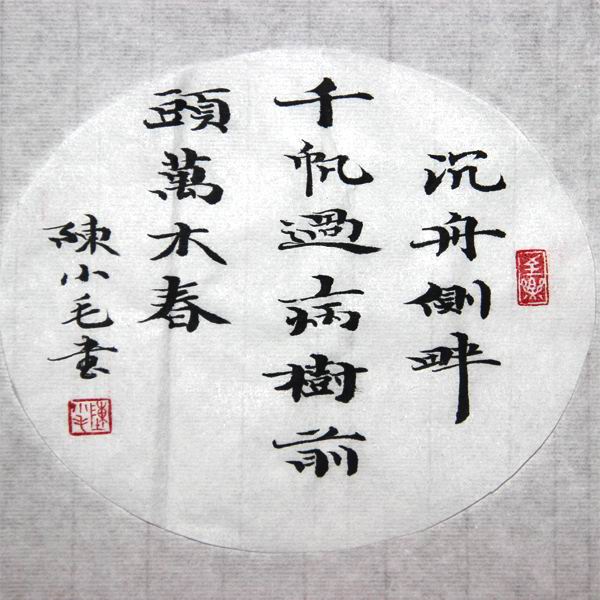 沉舟側畔
千帆過病樹前
頭萬木春
陳小毛書